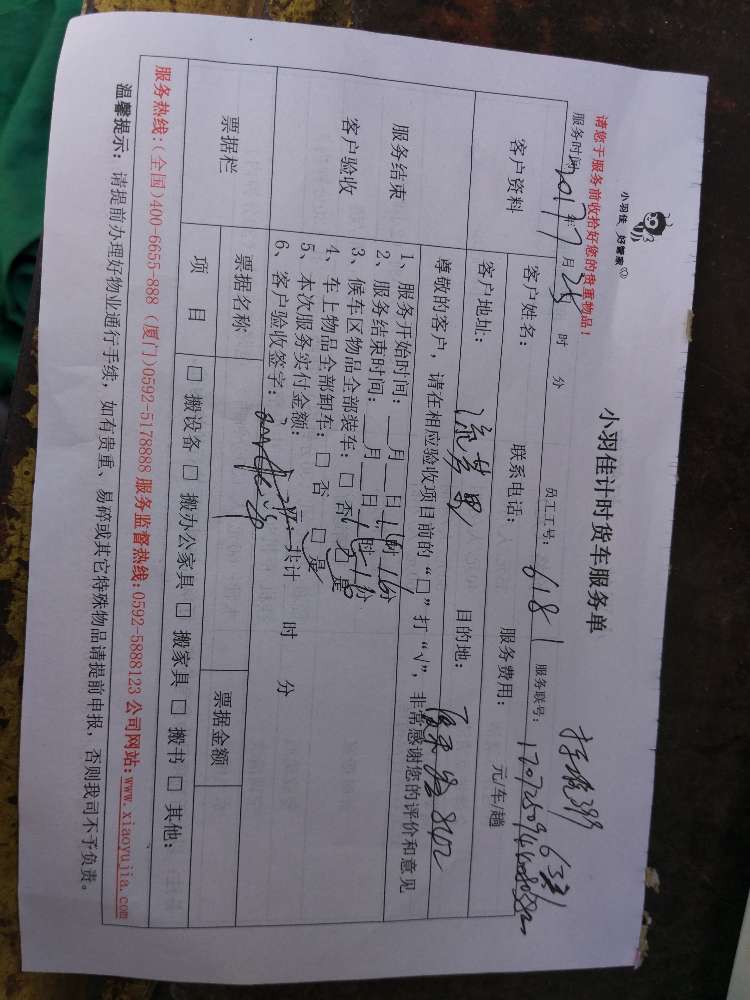 小羽佳 好管家
小羽佳计时货车服务单
请您于服务前收拾好您的贵重物品！
服务时间 2017年7月25 时 分 员工工号：6181 服务联号：
客户资料
客户姓名： 联系电话： 服务费用： 元/车/趟
客户地址： 目的地：
尊敬的客户，请在相应验收项目前的“□”打“√”，非常感谢您的评价和意见
服务结束
客户验收
1、服务开始时间：__月__日 时 分
2、服务结束时间：__月__日 时 分
3、候车区物品全部装车：□ 否 □ 是
4、车上物品全部卸车：□ 否 □ 是
5、本次服务实付金额： 元，共计 时 分
6、客户验收签字：
票据栏
票据名称 票据金额
项 目 □ 搬设备 □ 搬办公家具 □ 搬家具 □ 搬书 □ 其他：
服务热线：(全国)400-6655-888 (厦门)0592-5178888 服务监督热线：0592-5888123 公司网站：www.xiaoyujia.com
温馨提示：请提前办理好物业通行手续，如有贵重、易碎或其它特殊物品请提前申报，否则我司不予负责。